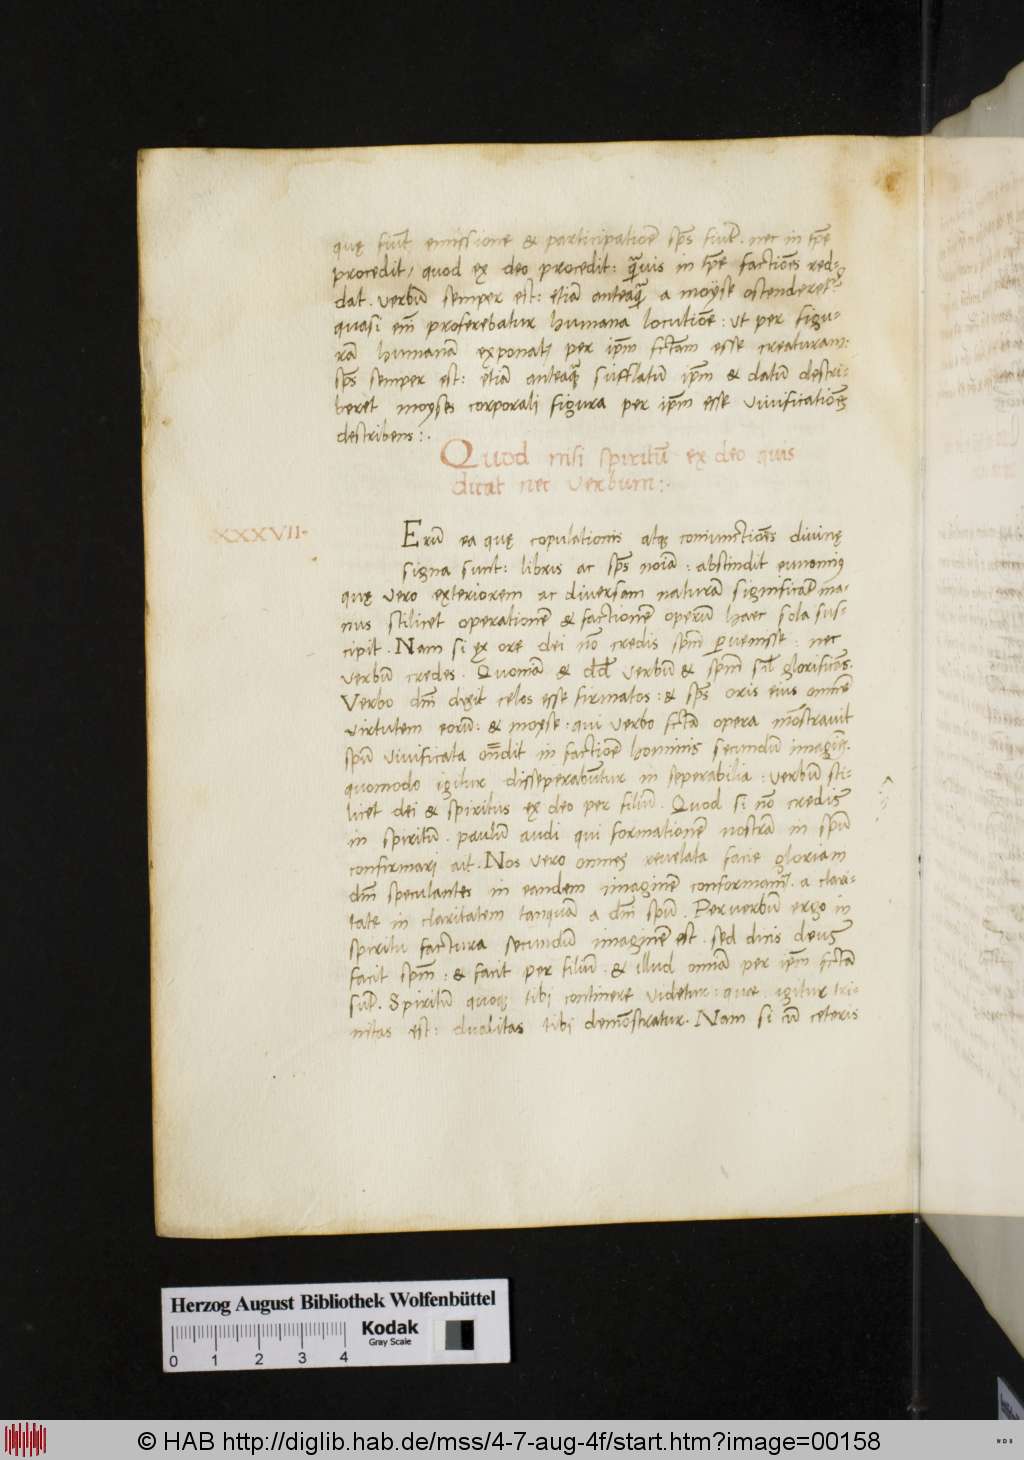 quę fiūt emissione & participatiōe sp̄s fiūt. nec in tp̄e
procedit, quod ex deo procedit: q̄uis in tp̄e factiōēs red-
dat. verbū semper est: etiā anteaq̄ a moyse ostenderet᷑
quasi em̄ proferebatur humana locutiōe: ut per figu-
rā humanā exponat᷑ per ip̄m fctam esse creaturam:
sp̄s semper est: etiā anteaq̄ sufflatū ip̄m & datū descri-
beret moyses corporali figura per ip̄m esse vivificatiōēs
describens:.
Quod nisi spiritū ex deo quis
dicat nec verbum:.
XXXVII.
Erū ea quę copulationis atq; coniunctiōēs divinę
signa sunt: libris ac sp̄s noīa: abscindit eunomiꝰ
quę vero exteriorem ac diversam naturā significāt ma-
nus scilicet operationē & factionē operū haec sola sus-
cipit. Nam si ex ore dei nō credis sp̄m pvenisse: nec
verbū credes. Quoniā & dd̄ verbū & sp̄m sil̄ glorificās.
Verbo dn̄i dixit celos esse firmatos: & sp̄s oris eius omnē
virtutem eorū: & moyse: qui verbo fctā opera mōstravit
spū vivificata on̄dit in factiōe hominis secundū imaginē.
quomodo igitur disseperabūtur in seperabilia: verbū sci-
licet dei & spiritus ex deo per filiū. Quod si nō credis
in spiritū. paulū audi qui formationē nostrā in spū
confirmari ait. Nos vero omnes revelata facie gloriam
dn̄i speculantes in eandem imaginē conformam᷑. a clari-
tate in claritatem tanquā a dn̄i spū. Per verbū ergo in
spiritu factura secundū imaginē est. sed dicis deus
facit sp̄m: & facit per filiū. & illud omīa per ip̄m fctā
sūt. Spiritū quoq; tibi continere videtur: que igitur tri-
nitas est: dualitas tibi demōstratur. Nam si cū ceteris
Herzog August Bibliothek Wolfenbüttel
Kodak
Gray Scale
0 1 2 3 4
© HAB http://diglib.hab.de/mss/4-7-aug-4f/start.htm?image=00158